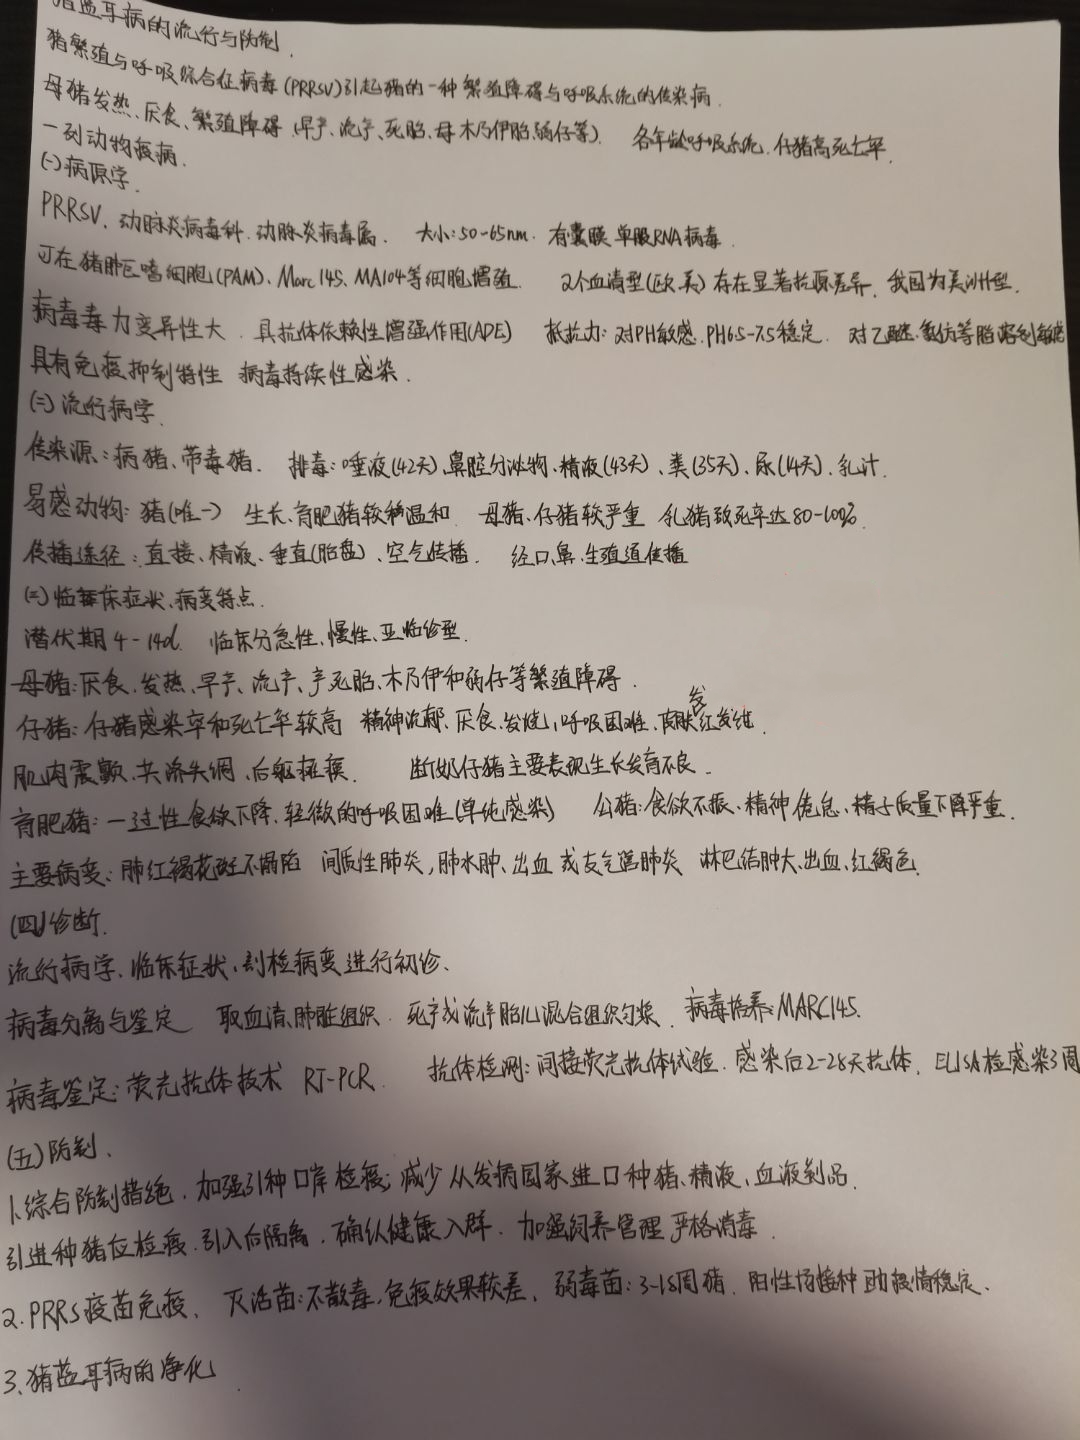 猪蓝耳病的流行与防制.
猪繁殖与呼吸综合征病毒(PRRSV)引起猪的一种繁殖障碍与呼吸系统的传染病.
母猪发热、厌食、繁殖障碍(早产、流产、死胎、母木乃伊胎、弱仔等). 各年龄呼吸系统、仔猪高死亡率.
一类动物疫病.
(一)病原学.
PRRSV、动脉炎病毒科.动脉炎病毒属. 大小:50-65nm. 有囊膜单股RNA病毒.
可在猪肺巨噬细胞(PAM)、Marc145、MA104等细胞增殖. 2个血清型(欧.美)存在显著抗原差异,我国为美洲型.
病毒毒力变异性大. 具抗体依赖性增强作用(ADE) 抵抗力:对PH敏感.PH6.5-7.5稳定. 对乙醚.氯仿等脂溶剂敏感
具有免疫抑制特性 病毒持续性感染.
(二)流行病学.
传染源:病猪、带毒猪. 排毒:唾液(42天)、鼻腔分泌物、精液(43天)、粪(35天)、尿(14天)、乳汁.
易感动物:猪(唯一) 生长、育肥猪较温和 母猪、仔猪较严重 乳猪致死率达80-100%.
传播途径:直接、精液、垂直(胎盘)、空气传播. 经口、鼻、生殖道传播
(三)临床症状、病变特点.
潜伏期4-14d. 临床分急性、慢性、亚临诊型.
母猪:厌食、发热、早产、流产、产死胎、木乃伊和弱仔等繁殖障碍.
仔猪:仔猪感染率和死亡率较高 精神沉郁、厌食、发烧,呼吸困难、皮肤发红发绀.
肌肉震颤、共济失调、后躯瘫痪. 断奶仔猪主要表现生长发育不良.
育肥猪:一过性食欲下降、轻微的呼吸困难(单纯感染) 公猪:食欲不振、精神倦怠、精子质量下降严重.
主要病变:肺红褐花斑不塌陷 间质性肺炎,肺水肿、出血或支气管肺炎 淋巴结肿大、出血、红褐色.
(四)诊断.
流行病学、临床症状、剖检病变进行初诊、
病毒分离与鉴定 取血清、肺脏组织. 死产或流产胎儿混合组织匀浆. 病毒培养:MARC145.
病毒鉴定:荧光抗体技术 RT-PCR. 抗体检测:间接荧光抗体试验. 感染后2-28天抗体. ELISA检感染3周
(五)防制、
1.综合防制措施. 加强引种口岸检疫;减少从发病国家进口种猪、精液、血液制品.
引进种猪应检疫.引入后隔离.确认健康入群. 加强饲养管理 严格消毒.
2.PRRS疫苗免疫、 灭活苗:不散毒、免疫效果较差、弱毒苗:3-18周猪. 阳性场接种助疫情稳定、
3、猪蓝耳病的净化.